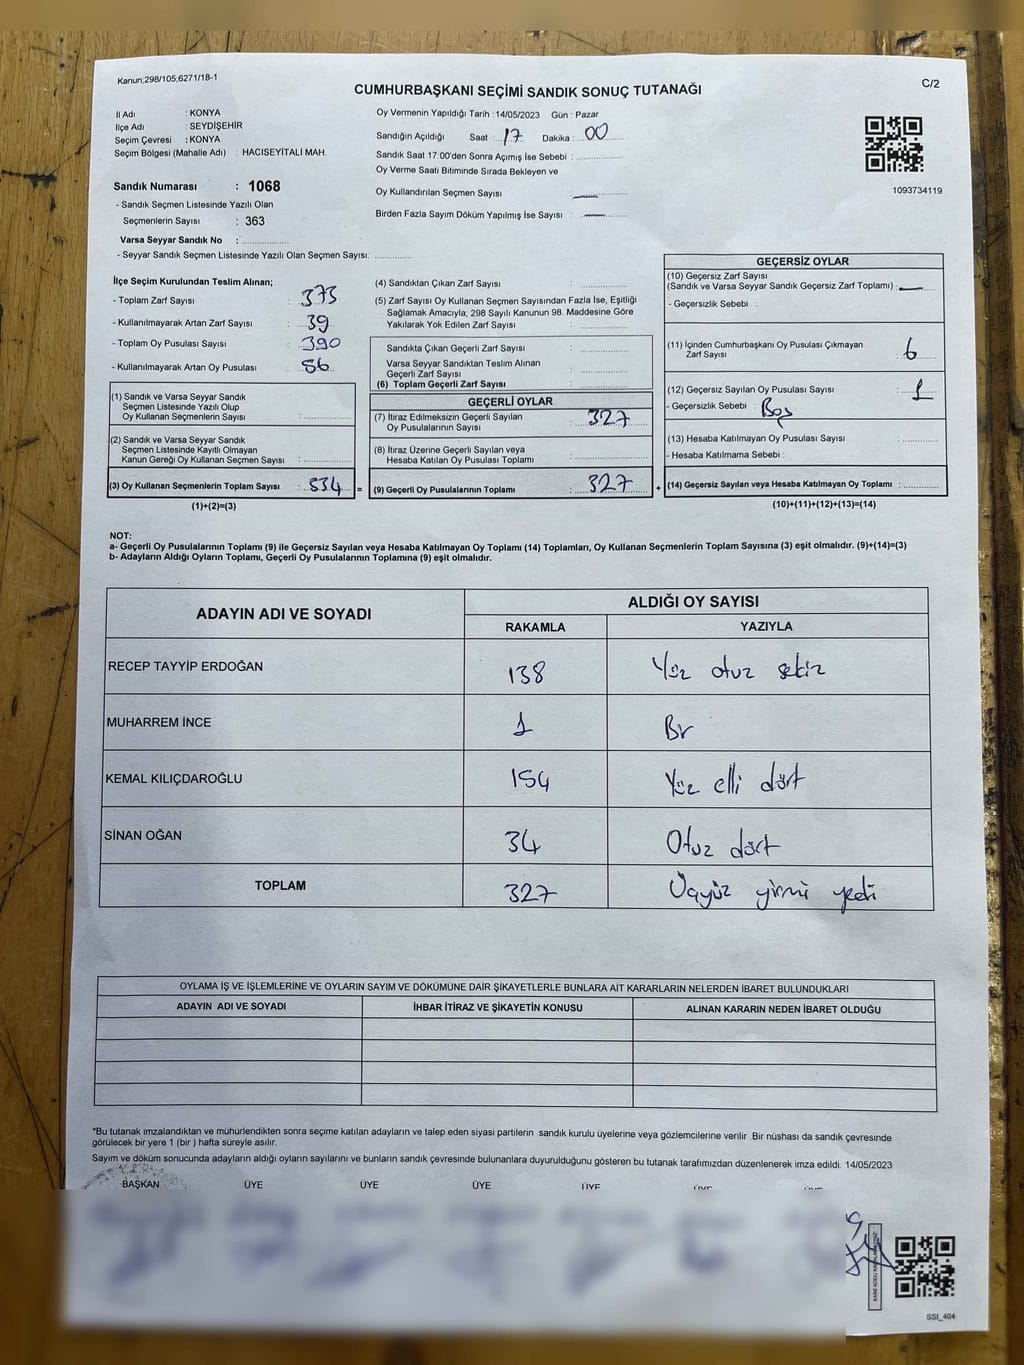 Kanun;298/105,6271/18-1
CUMHURBAŞKANI SEÇİMİ SANDIK SONUÇ TUTANAĞI
C/2
İl Adı : KONYA
İlçe Adı : SEYDİŞEHİR
Seçim Çevresi : KONYA
Seçim Bölgesi (Mahalle Adı) : HACISEYİTALİ MAH.
Oy Vermenin Yapıldığı Tarih :14/05/2023 Gün : Pazar
Sandığın Açıldığı Saat : 17 Dakika : 00
Sandık Saat 17:00'den Sonra Açımış İse Sebebi :
Oy Verme Saati Bitiminde Sırada Bekleyen ve
Oy Kullandırılan Seçmen Sayısı : —
Birden Fazla Sayım Döküm Yapılmış İse Sayısı : —
1093734119
Sandık Numarası : 1068
- Sandık Seçmen Listesinde Yazılı Olan
Seçmenlerin Sayısı : 363
Varsa Seyyar Sandık No :
- Seyyar Sandık Seçmen Listesinde Yazılı Olan Seçmen Sayısı:
İlçe Seçim Kurulundan Teslim Alınan;
- Toplam Zarf Sayısı : 373
- Kullanılmayarak Artan Zarf Sayısı : 39
- Toplam Oy Pusulası Sayısı : 390
- Kullanılmayarak Artan Oy Pusulası : 56
(1) Sandık ve Varsa Seyyar Sandık
Seçmen Listesinde Yazılı Olup
Oy Kullanan Seçmenlerin Sayısı :
(2) Sandık ve Varsa Seyyar Sandık
Seçmen Listesinde Kayıtlı Olmayan
Kanun Gereği Oy Kullanan Seçmen Sayısı :
(3) Oy Kullanan Seçmenlerin Toplam Sayısı : 334 =
(1)+(2)=(3)
(4) Sandıktan Çıkan Zarf Sayısı :
(5) Zarf Sayısı Oy Kullanan Seçmen Sayısından Fazla İse, Eşitliği
Sağlamak Amacıyla; 298 Sayılı Kanunun 98. Maddesine Göre
Yakılarak Yok Edilen Zarf Sayısı :
Sandıkta Çıkan Geçerli Zarf Sayısı :
Varsa Seyyar Sandıktan Teslim Alınan
Geçerli Zarf Sayısı :
(6) Toplam Geçerli Zarf Sayısı :
GEÇERLİ OYLAR
(7) İtiraz Edilmeksizin Geçerli Sayılan
Oy Pusulalarının Sayısı : 327
(8) İtiraz Üzerine Geçerli Sayılan veya
Hesaba Katılan Oy Pusulası Toplamı :
(9) Geçerli Oy Pusulalarının Toplamı : 327 +
GEÇERSİZ OYLAR
(10) Geçersiz Zarf Sayısı
(Sandık ve Varsa Seyyar Sandık Geçersiz Zarf Toplamı) : —
- Geçersizlik Sebebi :
(11) İçinden Cumhurbaşkanı Oy Pusulası Çıkmayan
Zarf Sayısı : 6
(12) Geçersiz Sayılan Oy Pusulası Sayısı : 1
- Geçersizlik Sebebi : Boş
(13) Hesaba Katılmayan Oy Pusulası Sayısı :
- Hesaba Katılmama Sebebi :
(14) Geçersiz Sayılan veya Hesaba Katılmayan Oy Toplamı :
(10)+(11)+(12)+(13)=(14)
NOT:
a- Geçerli Oy Pusulalarının Toplamı (9) ile Geçersiz Sayılan veya Hesaba Katılmayan Oy Toplamı (14) Toplamları, Oy Kullanan Seçmenlerin Toplam Sayısına (3) eşit olmalıdır. (9)+(14)=(3)
b- Adayların Aldığı Oyların Toplamı, Geçerli Oy Pusulalarının Toplamına (9) eşit olmalıdır.
ADAYIN ADI VE SOYADI
ALDIĞI OY SAYISI
RAKAMLA YAZIYLA
RECEP TAYYİP ERDOĞAN 138 Yüz otuz sekiz
MUHARREM İNCE 1 Bir
KEMAL KILIÇDAROĞLU 154 Yüz elli dört
SİNAN OĞAN 34 Otuz dört
TOPLAM 327 Üçyüz yirmi yedi
OYLAMA İŞ VE İŞLEMLERİNE VE OYLARIN SAYIM VE DÖKÜMÜNE DAİR ŞİKAYETLERLE BUNLARA AİT KARARLARIN NELERDEN İBARET BULUNDUKLARI
ADAYIN ADI VE SOYADI İHBAR İTİRAZ VE ŞİKAYETİN KONUSU ALINAN KARARIN NEDEN İBARET OLDUĞU
*Bu tutanak imzalandıktan ve mühürlendikten sonra seçime katılan adayların ve talep eden siyasi partilerin sandık kurulu üyelerine veya gözlemcilerine verilir .Bir nüshası da sandık çevresinde
görülecek bir yere 1 (bir ) hafta süreyle asılır.
Sayım ve döküm sonucunda adayların aldığı oyların sayılarını ve bunların sandık çevresinde bulunanlara duyurulduğunu gösteren bu tutanak tarafımızdan düzenlenerek imza edildi. 14/05/2023
BAŞKAN ÜYE ÜYE ÜYE ÜYE ÜYE ÜYE
SSI_404